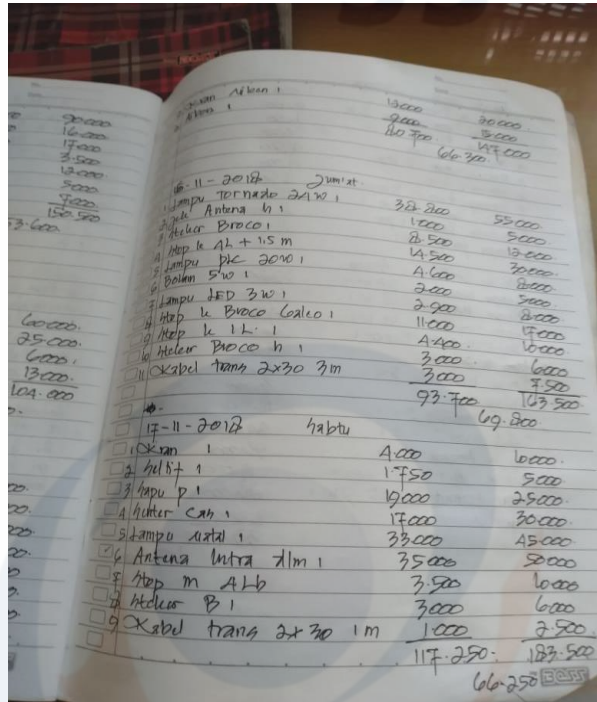 90.000
16.000
17.000
3.500
12.000
5000
7000
150.500
53.600
60000.
25.000
6000.
13000.
104.000
12000 20000
9000 15000
80.700 147.000
66.300
16-11-2018 Jum'at
1 Lampu Tornado 24w 1 38.800 55000
2 Jek Antena h 1 1.000 5000
3 steker Broco 1 8.500 12.000
4 Stop k 4L + 1.5 m 14.500 30.000
5 Lampu plc 20w 1 4.600 8000
6 Bohlam 5w 1 2.000 5000
7 Lampu LED 3w 1 2.900 8000
8 Stop k Broco Galeo 1 11.000 17000
9 Stop k 1L. 1 4.400 10000
10 steker Broco h 1 3.000 6000
11 Kabel trans 2x30 3m 3.000 7.500
93.700 163.500
69.800
17-11-2018 Sabtu
1 Kran 1 4.000 10000.
2 1.750 5000
3 Sapu p 1 19.000 25000
4 senter Cah 1 17000 30.000.
5 Lampu 1 33.000 45.000
6 Antena Intra dlm 1 35000 50000
7 Stop m 4Lb 3.500 10000
8 steker B 1 3.000 6000
9 Kabel trans 2x30 1m 1.000 2.500.
117.250. 183.500
66.250 BOSS